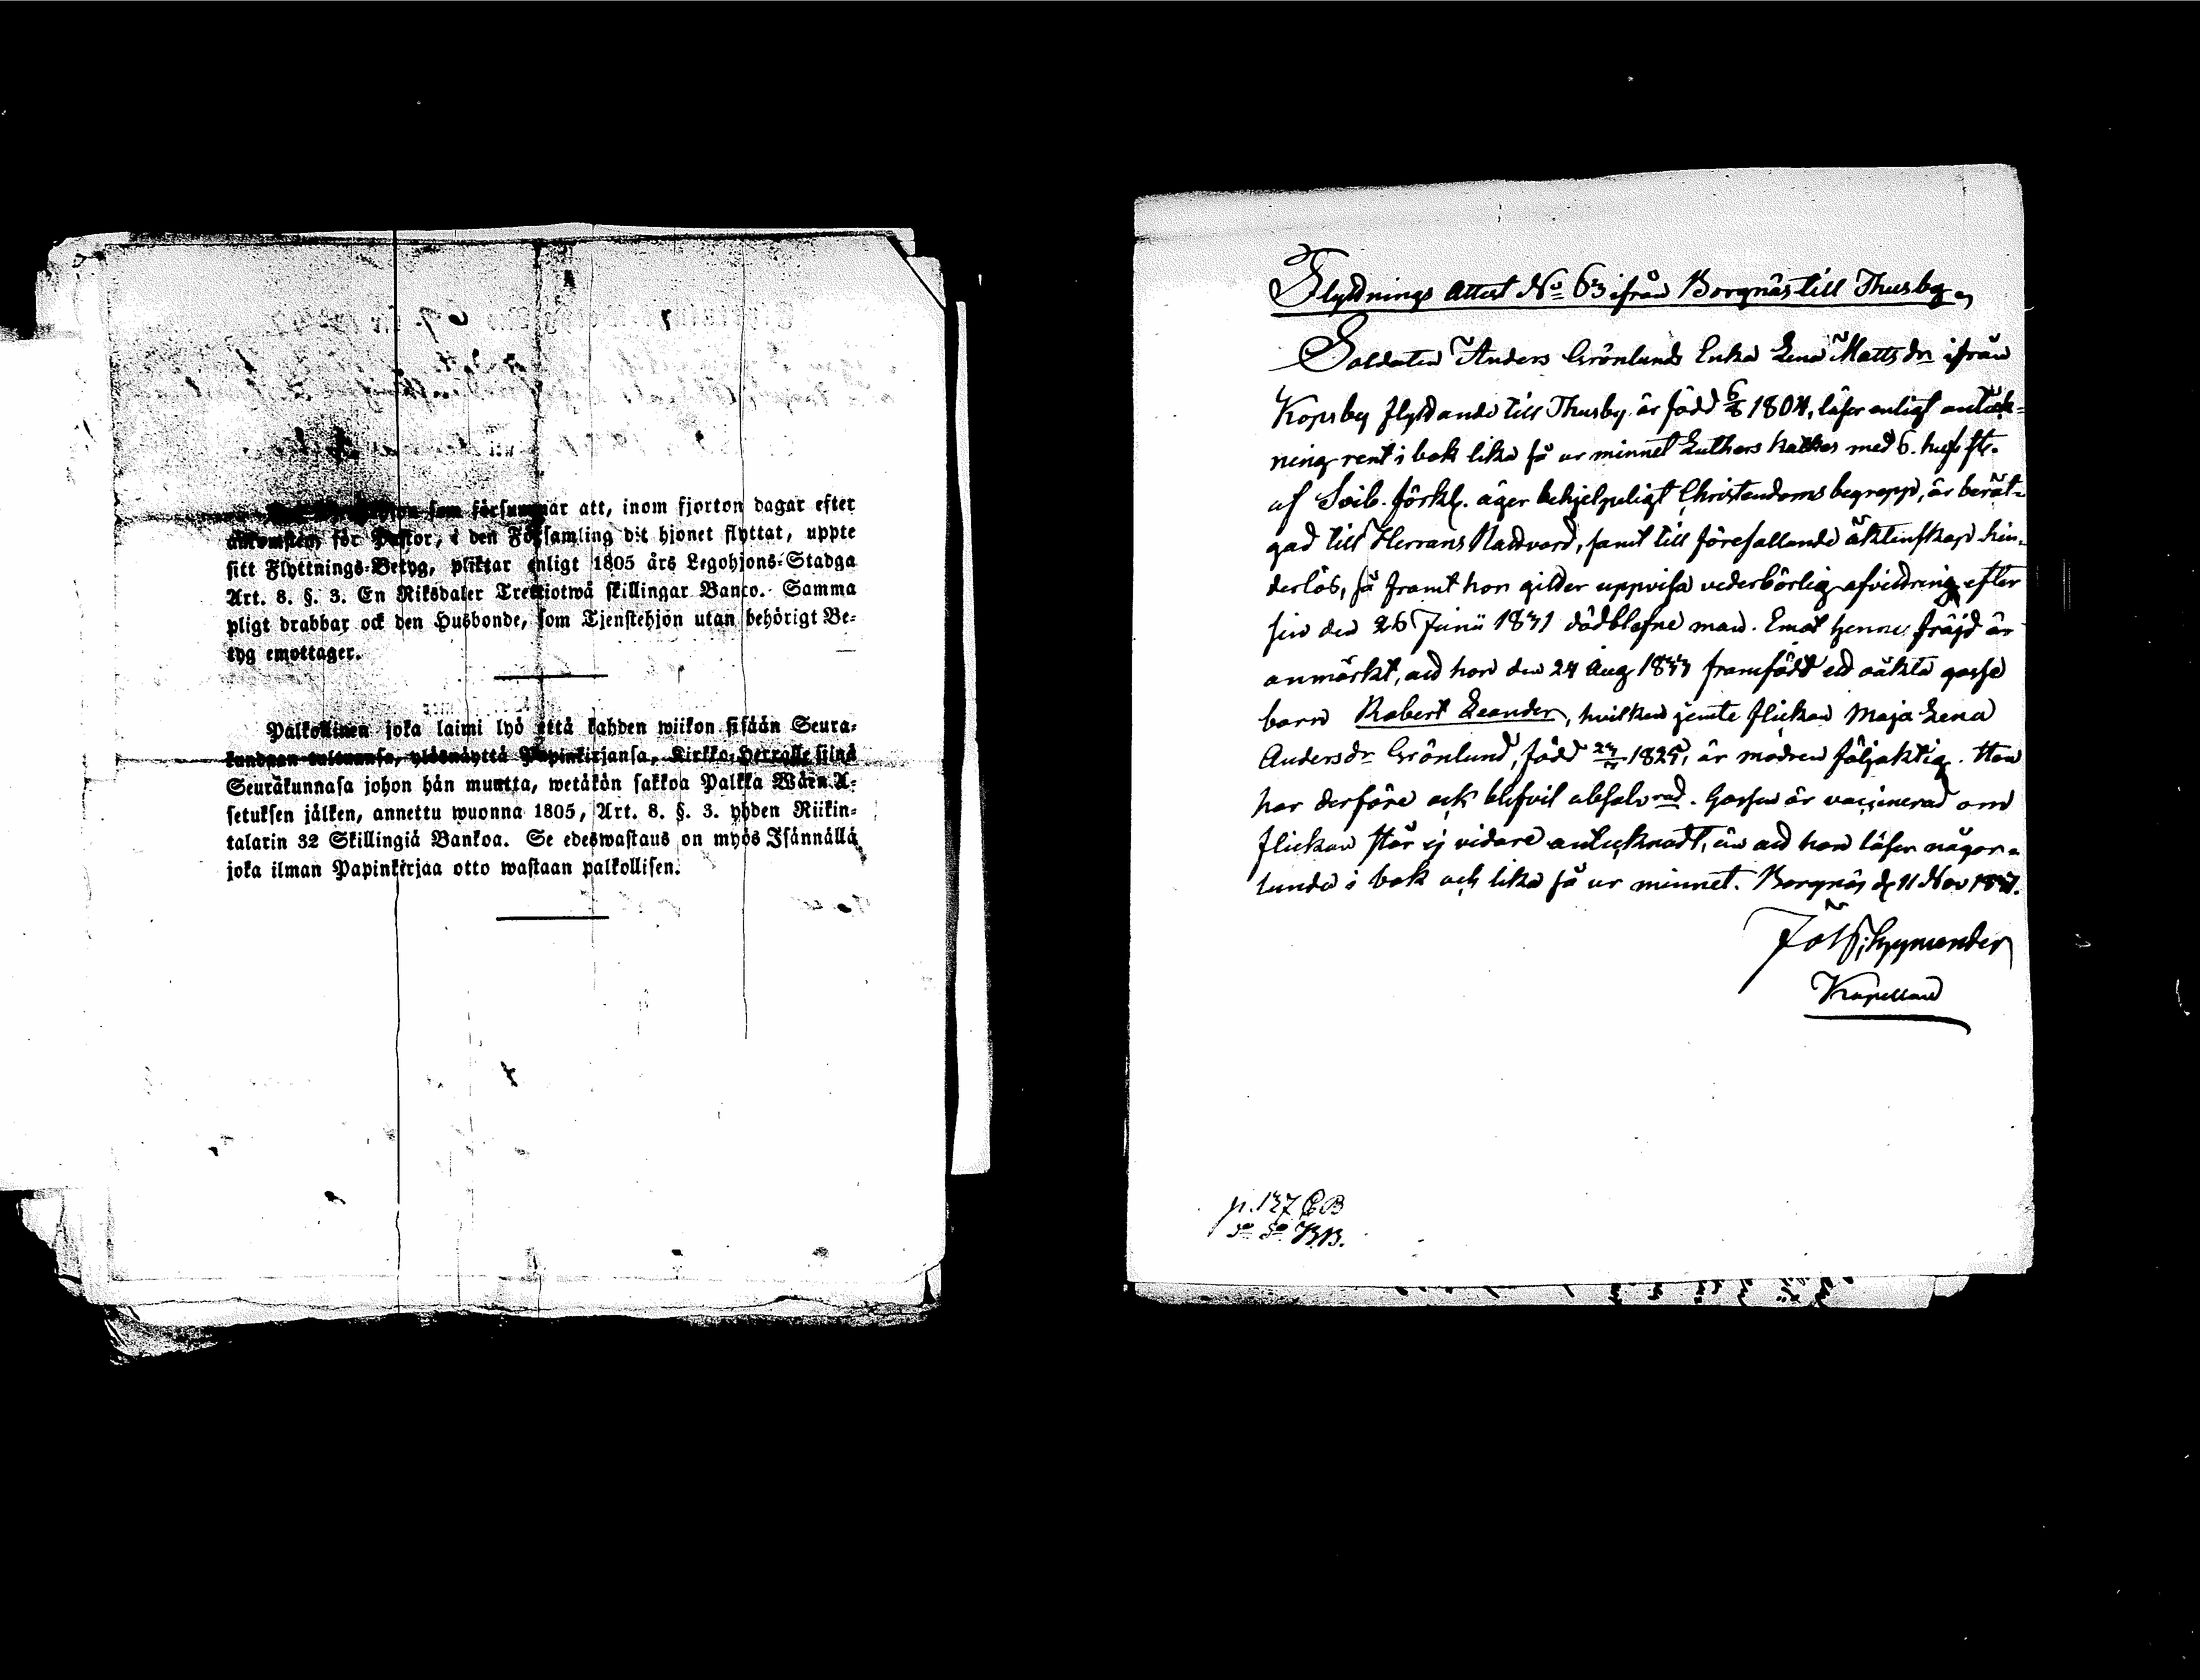 som försummar att, inom fjorton dagar efter
ankomsten för Pastor, i den Församling dit hjonet flyttat, uppte
sitt Flyttnings-Betyg, pliktar enligt 1805 års Legohjons-Stadga
Art. 8. §. 3. En Riksdaler Trettiotwå skillingar Banco. Samma
pligt drabbar ock den Husbonde, som Tjenstehjon utan behörigt Be-
tyg emottager.
Palkollinen joka laimi lyö että kahden wiikon sisään Seura-
kundaan tultuansa, ylösnäyttä Papinkirjansa, Kirkko-Herralle siinä
Seuräkunnasa johon hän muutta, wetäkön sakkoa Palkka Wäen A-
setuksen jälken, annettu wuonna 1805, Art. 8. §. 3. yhden Riikin-
talarin 32 Skillingiä Bankoa. Se edeswastaus on myös Isännällä
joka ilman Papinkirjaa otto wastaan palkollisen.
Flyttnings Attest No 63 ifrån Borgnäs till Thusby
Soldaten Anders Grönlunds Enka Lena Mattsdr ifrån
Kopsby flyttande till Thusby är född 6/8 1804, läser enligt anteck-
ning rent i bok lika så ur minnet Luthers Katkes med 6. hufst.
af Sveb. förkl. äger behjelpeligt Christendoms begrepp, är berät-
gad till Herrans Nattvard, samt till förefallande äktenskap hin-
derlös, så framt hon gitter uppvisa vederbörlig afvittring efter
sin den 26 Junii 1831 dödblefne man. Emot hennes fräjd är
anmärkt, att hon den 24 Aug 1833 framfödt ett oäkta gosse
barn Robert Leander, hvilken jemte flickan Maja Lena
Andersdr Grönlund, född 1825, är modren följaktig. Hon
har derföre ock blifvit absolverad. Gossen är vaccinerad om
flickan står ej vidare antecknadt, än att hon läser någor-
lunda i bok och lika så ur minnet. Borgnäs d 11 Nov
Kapellan
p. 137 CB
BB.